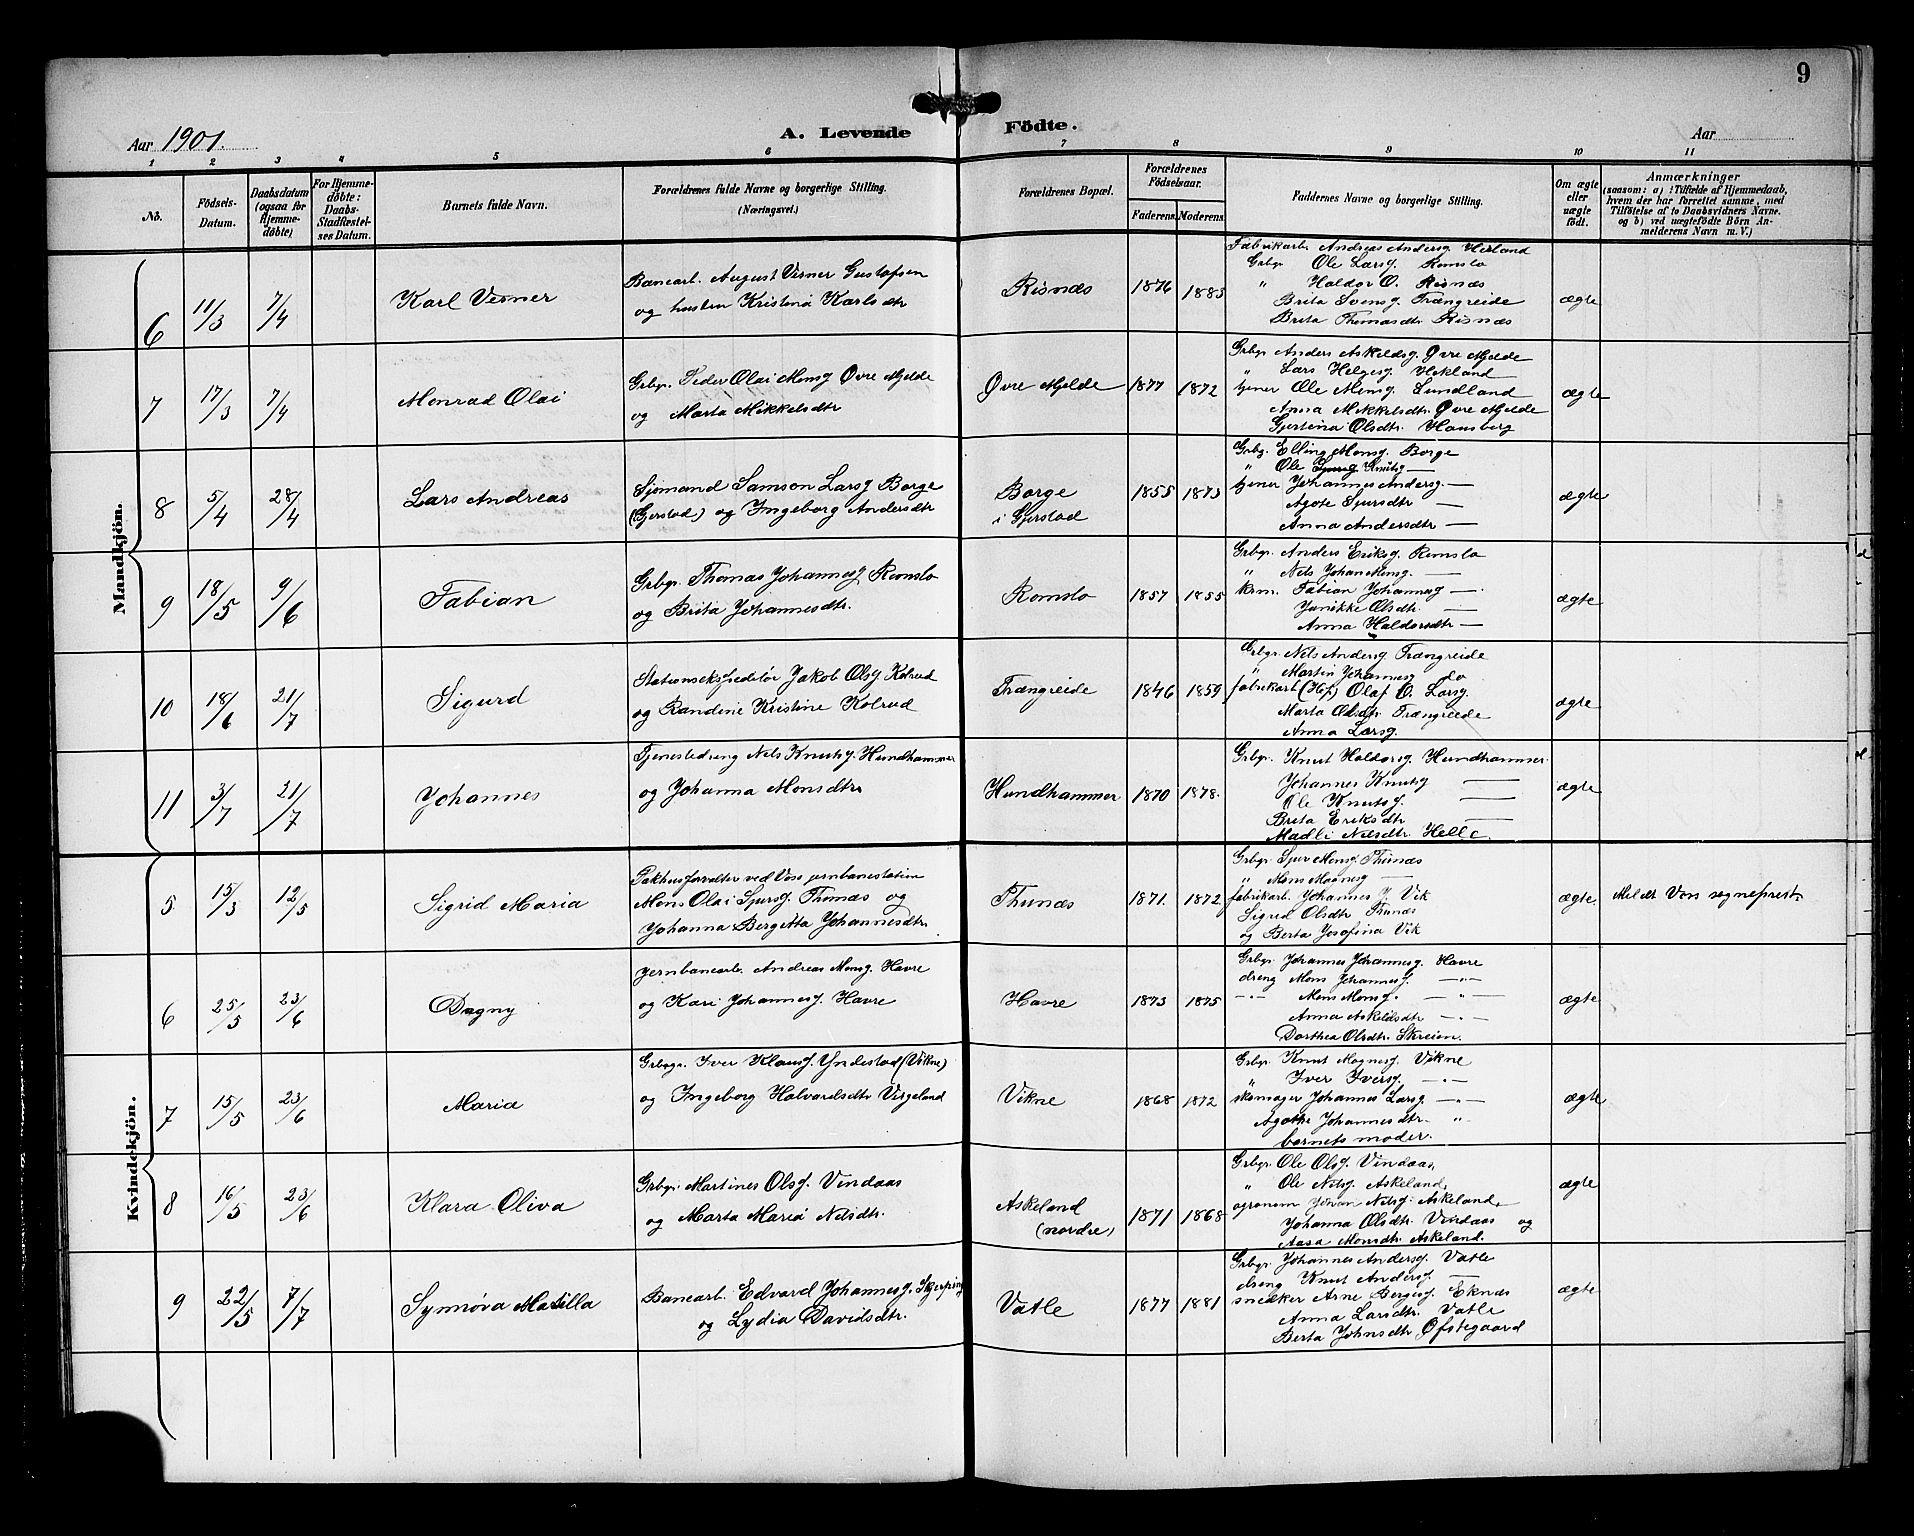 9
Aar 1901.
A. Levende Födte.
Aar
1 2 3 4 5 6 7 8 9 10 11
No.
Födsels-Datum.
Daabsdatum (ogsaa for Hjemme-döbte)
For Hjemme-döbte: Daabs-Stadfæstel-ses Datum.
Barnets fulde Navn.
Forældrenes fulde Navne og borgerlige Stilling.
(Næringsvei.)
Forældrenes Bopæl.
Forældrenes Födselsaar.
Faderens. Moderens.
Faddernes Navne og borgerlige Stilling.
Om ægte eller uægte født.
Anmærkninger
(saasom: a) i Tilfælde af Hjemmedaab,
hvem der har forrettet samme, med
Tilföielse af to Daabsvidners Navne.
og b) ved uægtefödte Börn An-
melderens Navn m. V.)
Mandkjön.
6 11/3 7/4 Karl Verner
Banearb. August Verner Gustafsen
og hustru Kristina Karlsdtr
Risnæs 1876 1883
Fabrikarb. Andreas Andersg. Herland
Grbgr. Ole Larsg. Romslo
" Haldor O. Risnæs
Brita Svensg. Trængreide
Brita Thomasdtr. Risnæs
ægte
7 17/3 7/4 Monrad Olai
Grbgr. Peder Olai Monsg Øvre Mjelde
og Marta Mikkelsdtr
Øvre Mjelde 1877 1872
Grbgr. Anders Askeldsg. Øvre Mjelde
" Lars Helgesg. Hokland
tjener Ole Monsg. Lundland
Anna Mikkelsdtr. Øvre Mjelde
Gjertina Olsdtr. Hansberg
ægte
8 5/4 28/4 Lars Andreas
Sjømand Samson Larsg Borge
(Gjerstad) og Ingeborg Andersdtr
Borge
i Gjerstad
1855 1873
Grbgr. Elling Monsg. Borge
" Ole Knutsg —
tjener Johannes Andersg. —
Agote Sjursdtr —
Anna Andersdtr —
ægte
9 18/5 9/6 Fabian
Grbgr. Thomas Johannesg Romslo
og Brita Johannesdtr.
Romslo 1857 1855
Grbgr. Anders Eriksg. Romslo
" Nels Johan Monsg. —
krm. Fabian Johannesg —
Janikke Olsdtr. —
Anna Haldorsdtr —
ægte
10 18/6 21/7 Sigurd
Stationsekspeditør Jakob Olsg Kolrud
og Randine Kristine Kolrud
Trængreide 1846 1859
Grbgr. Nels Andersg. Trængreide
" Martin Johannesg do
fabrikarb. Olaf O. Larsg.
Marta Olsdtr. Trængreide
Anna Larsg.
ægte
11 3/7 21/7 Johannes
Tjenestedreng Nels Knutsg. Hundhammer
og Johanna Monsdtr
Hundhammer 1870 1878.
Grbgr. Knut Haldorsg. Hundhammer
Johannes Knutsg —
Ole Knutsg. —
Brita Eriksdtr —
Madli Nelsdtr. Helle
ægte
Kvindekjön.
5 15/3 12/5 Sigrid Maria
Pakhusforvalter ved Voss jernbanestation
Mons Olai Sjursg. Thunæs og
Johanna Bergitta Johannesdtr
Thunæs 1871. 1872
Grbgr. Sjur Monsg. Thunæs
" Mons Magnesg —
fabrikarb. Johannes J. Vik
Sigrid Olsdtr Thunæs
og Berta Josefina Vik
ægte Meldt Voss sogneprest
6 25/5 23/6 Dagny
Jernbanearb. Andreas Monsg. Havre
og Kari Johannesg. Havre
Havre 1873 1875
Grbgr. Johannes Johannesg. Havre
dreng Mons Johannesg. —"—
—"— Mons Monsg. — " —
Anna Askeldsdtr —"—
Dorthea Olsdtr. Skreien.
ægte
7 15/5 23/6 Maria
Grbgr. Iver Klausg. Yndestad (Vikne)
og Ingeborg Halvardsdtr Virgeland
Vikne 1868 1872
Grbgr. Knut Magnesg. Vikne
" Iver Iversg. —"—
skomager Johannes Larsg —"—
Agathe Johannesdtr "
barnets moder.
ægte
8 16/5 23/6 Klara Oliva
Grbgr. Martines Olsg. Vindaas
og Marta Maria Nelsdtr.
Askeland
(nordre)
1871 1868
Grbgr. Ole Olsg. Vindaas,
" Ole Nelsg. Askeland,
agronom Johan Nelsg. Askeland,
Johanna Olsdtr. Vindaas og
Aasa Monsdtr. Askeland.
ægte
9 22/5 7/7 Synnøva Matilla
Banearb. Edvard Johannesg. Skjerping
og Lydia Davidsdtr.
Vatle 1877 1881
Grbgr. Johannes Andersg. Vatle
dreng Knut Andersg —
snedker Arne Bergesg. Eknæs
Anna Larsdtr. Vatle
Berta Johnsdtr Øfstegaard
ægte